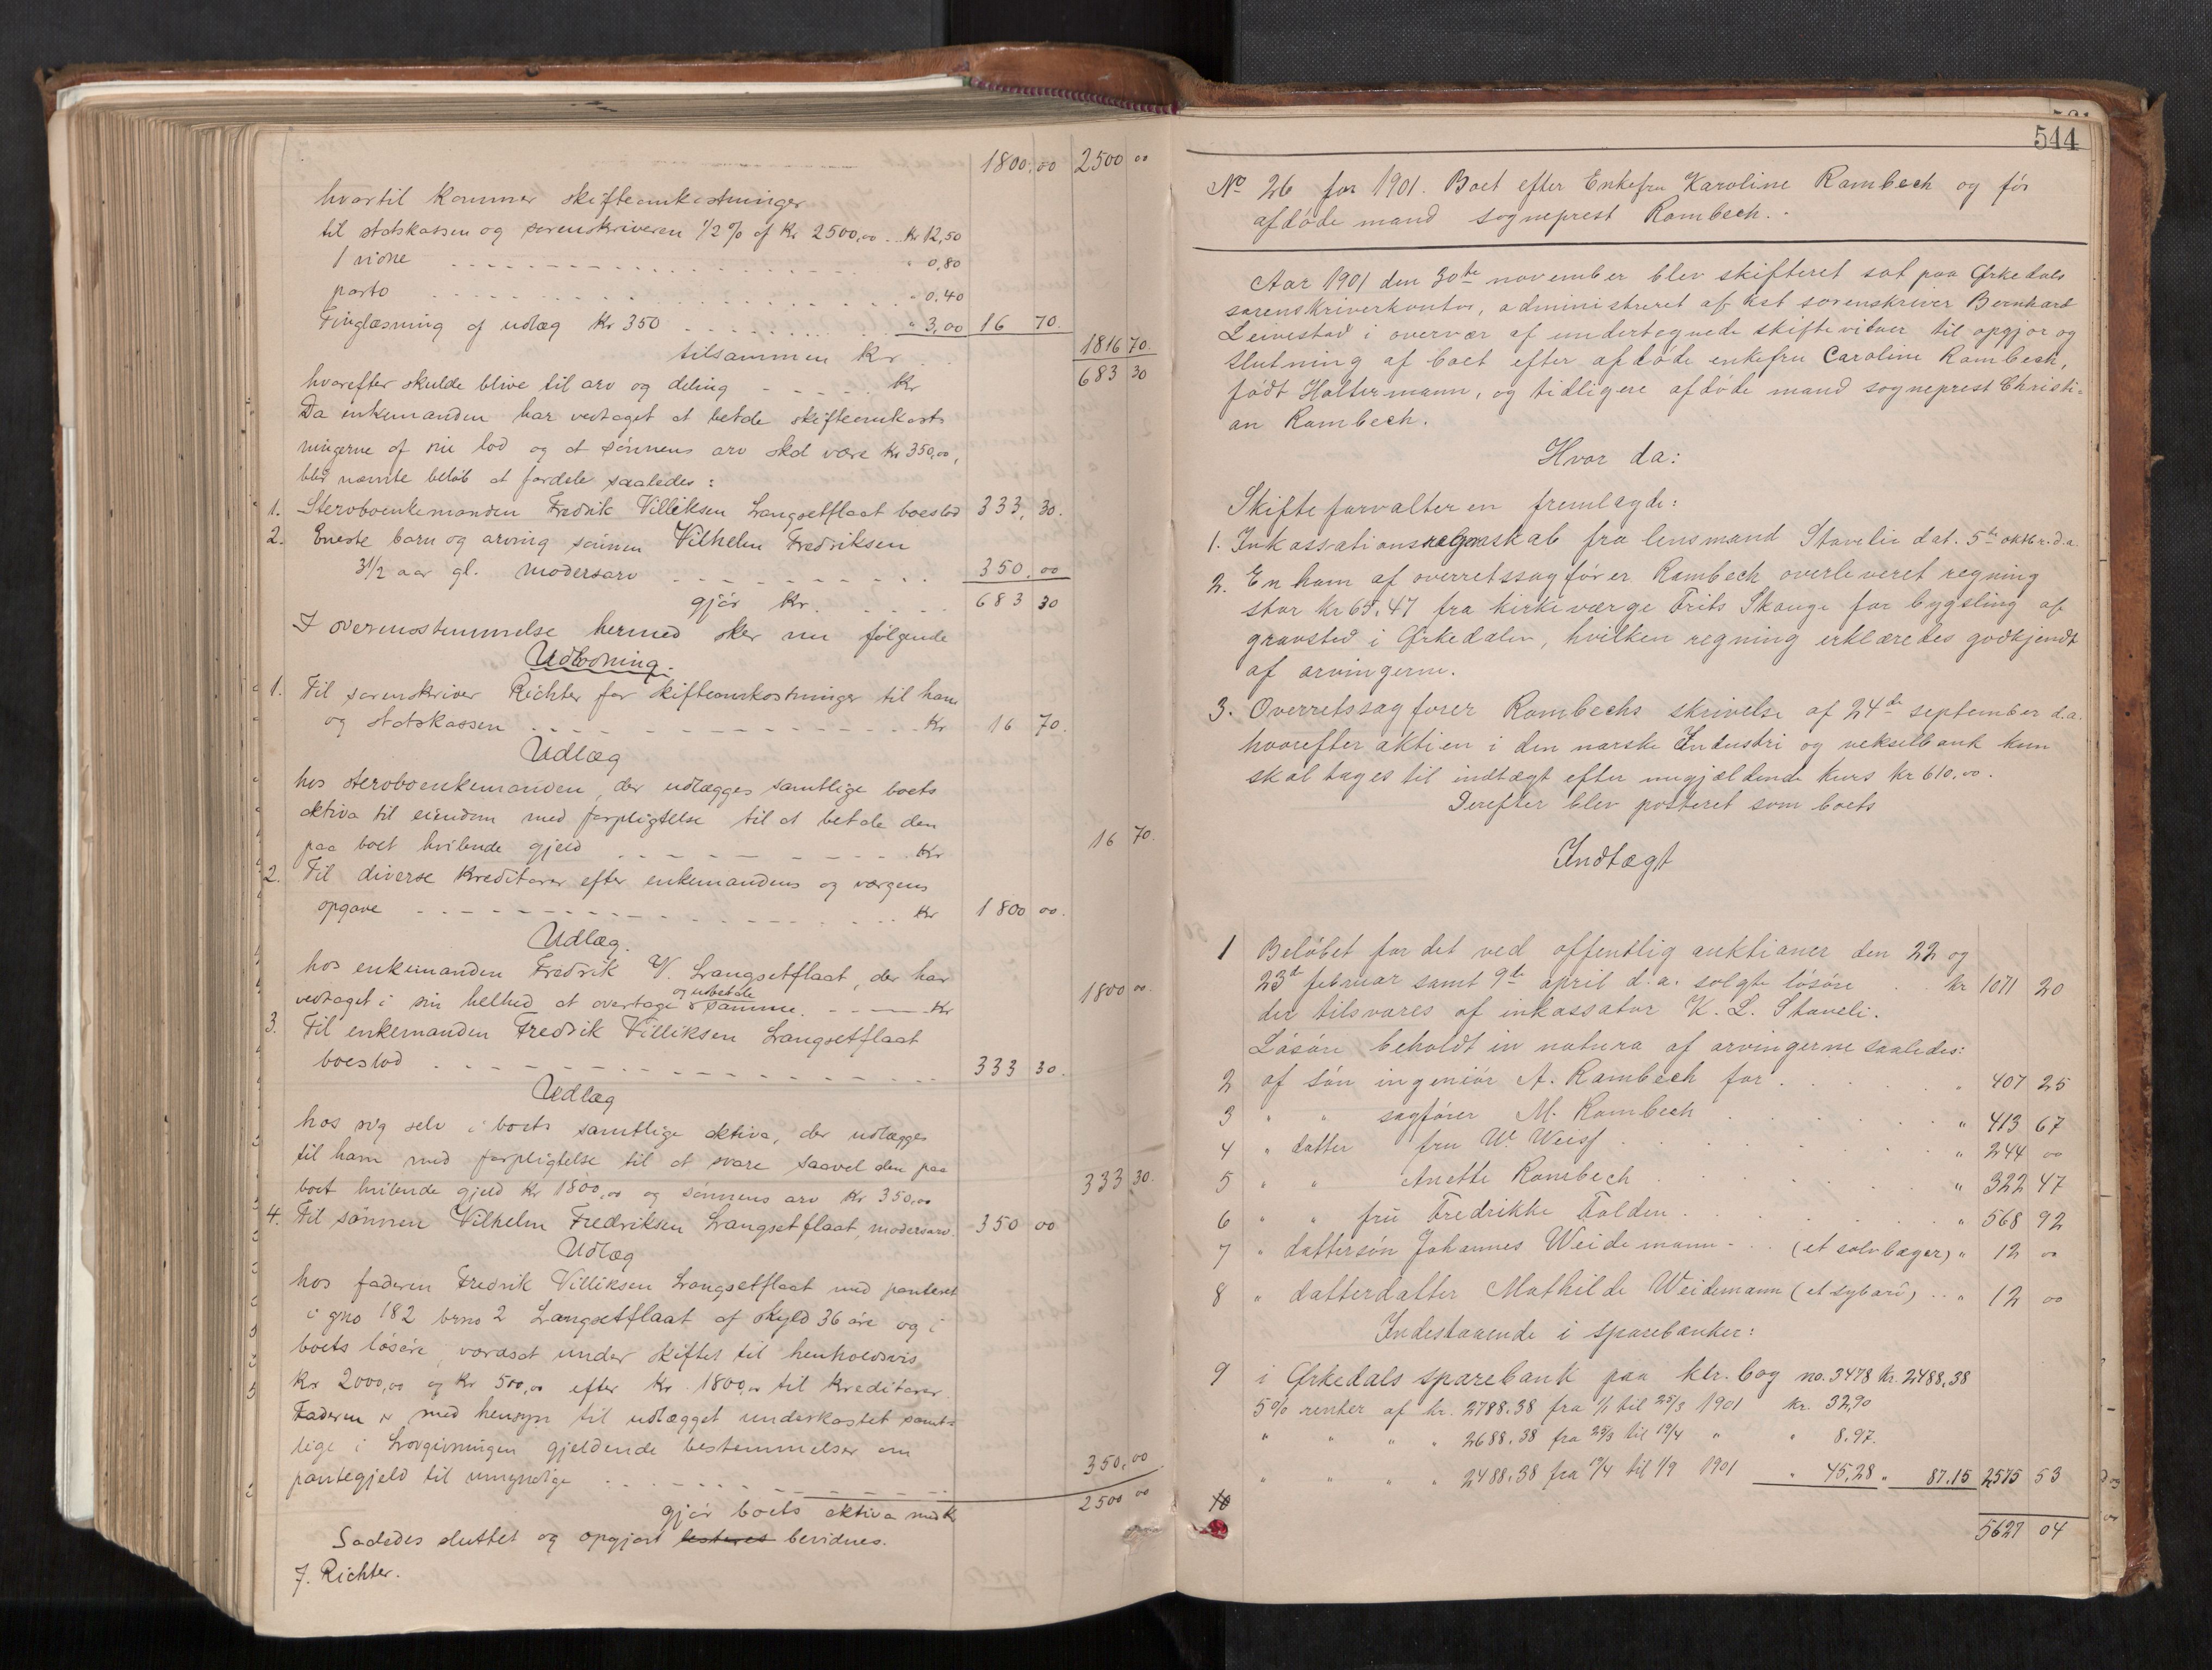 1800,00 2500 00
hvortil kommer skifteomkostninger
til statskassen og sorenskriveren 1/2 % af Kr 2500,00 .. Kr 12,50
1 vidne " 0,80
porto " 0.40
Tinglæsning af udlæg Kr 350 " 3,00 16 70.
tilsammen Kr 1816 70.
hvorefter skulde blive til arv og deling Kr 683 30
Da enkemanden har vedtaget at betale skifteomkost-
ningerne af sin lod og at sønnens arv skal være Kr 350,00,
blir nævnte beløb at fordele saaledes:
1. Sterboenkemanden Fredrik Villiksen Langsetflaat boeslod 333, 30.
2. Eneste barn og arving sønnen Vilhelm Fredriksen
3 1/2 aar gl. modersarv 350,00
gjør Kr. 683 30
I overensstemmelse hermed sker nu følgende
Udlodning.
1. Til sorenskriver Richter for skifteomkostninger til ham
og statskassen Kr 16 70.
Udlæg
hos sterboenkemanden, der udlægges samtlige boets
aktiva til eiendom med forpligtelse til at betale den
paa boet hvilende gjeld Kr 16 70.
2. Til diverse Kreditorer efter enkemandens og værgens
opgave Kr 1800 00.
Udlæg.
hos enkemanden Fredrik V. Langsetflaat, der har
vedtaget i sin helhed at overtage og udbetale samme. Kr 1800 00.
3. Til enkemanden Fredrik Villiksen Langsetflaat
boeslod 333 30.
Udlæg
hos sig selv i boets samtlige aktiva, der udlægges
til ham med forpligtelse til at svare saavel den paa
boet hvilende gjeld Kr 1800,00 og sønnens arv Kr 350,00 333 30.
4. Til sønnen Vilhelm Fredriksen Langsetflaat, modersarv. 350 00
Udlæg
hos faderen Fredrik Villiksen Langsetflaat med panteret
i gno 182 brno 2 Langsetflaat af skyld 36 øre og i
boets løsøre, værdsat under skiftet til henholdsvis
Kr 2000,00 og Kr 500,00 efter Kr. 1800,00 til Kreditorer.
Faderen er med hensyn til udlægget underkastet samt-
lige i Lovgivningen gjeldende bestemmelser om
pantegjeld til umyndige 350,00
gjør boets aktiva med Kr 2500 00
Saaledes sluttet og opgjort bevidnes.
J. Richter.
544
No 26 for 1901. Boet efter Enkefru Karoline Rambech og før
afdøde mand sogneprest Rambech.
Aar 1901 den 30te november blev skifteret sat paa Ørkedals
sorenskriverkontor, administreret af kst sorenskriver Bernhard
Leivestad i overvær af undertegnede skiftevidner til opgjør og
slutning af boet efter afdøde enkefru Caroline Rambech,
født Holtermann, og tidligere afdøde mand sogneprest Christi-
an Rambech.
Hvor da:
Skifteforvalteren fremlagde:
1. Inkassationsregnskab fra lensmand Stavelie dat. 5te oktbr. d.a.
2. En ham af overretssagfører Rambech overleveret regning
stor kr 65.47 fra kirkeværge Frits Skauge for bygsling af
gravsted i Ørkedalen, hvilken regning erklæredes godkjendt
af arvingerne.
3. Overretssagfører Rambechs skrivelse af 24de september d.a.
hvorefter aktien i den norske Industri og vekselbank kun
skal tages til indtægt efter nugjældende kurs kr 610.00.
Derefter blev posteret som boets
Indtægt
1 Beløbet for det ved offentlig auktioner den 22 og
23de februar samt 9de april d.a. solgte løsøre kr 1071 20
der tilsvares af inkassator K. L. Staveli.
Løsøre beholdt in natura af arvingerne saaledes:
2 af søn ingeniør A. Rambech for " 407 25
3 " " sagfører M. Rambech " 413 67
4 " datter fru W. Weisf " 244 00
5 " " Anette Rambech " 322 47
6 " " fru Fredrikke Folden " 568 92
7 " dattersøn Johannes Weidemann (et sølvbæger) " 12 00
8 " datterdatter Mathilde Weidemann (et sybord) " 12 00
Indestaaende i sparebanker:
9 i Ørkedals sparebank paa ktr. bog no. 3478 kr. 2488,38
5% renter af kr. 2788.38 fra 1/1 til 25/3 1901 kr. 32,90
" " " " 2688.38 fra 25/3 til 19/4 " " 8.97.
" " " " 2488.38 fra 19/4 til 1/9 1901 " 45,28 " 87.15 2575 53
10
5627 04